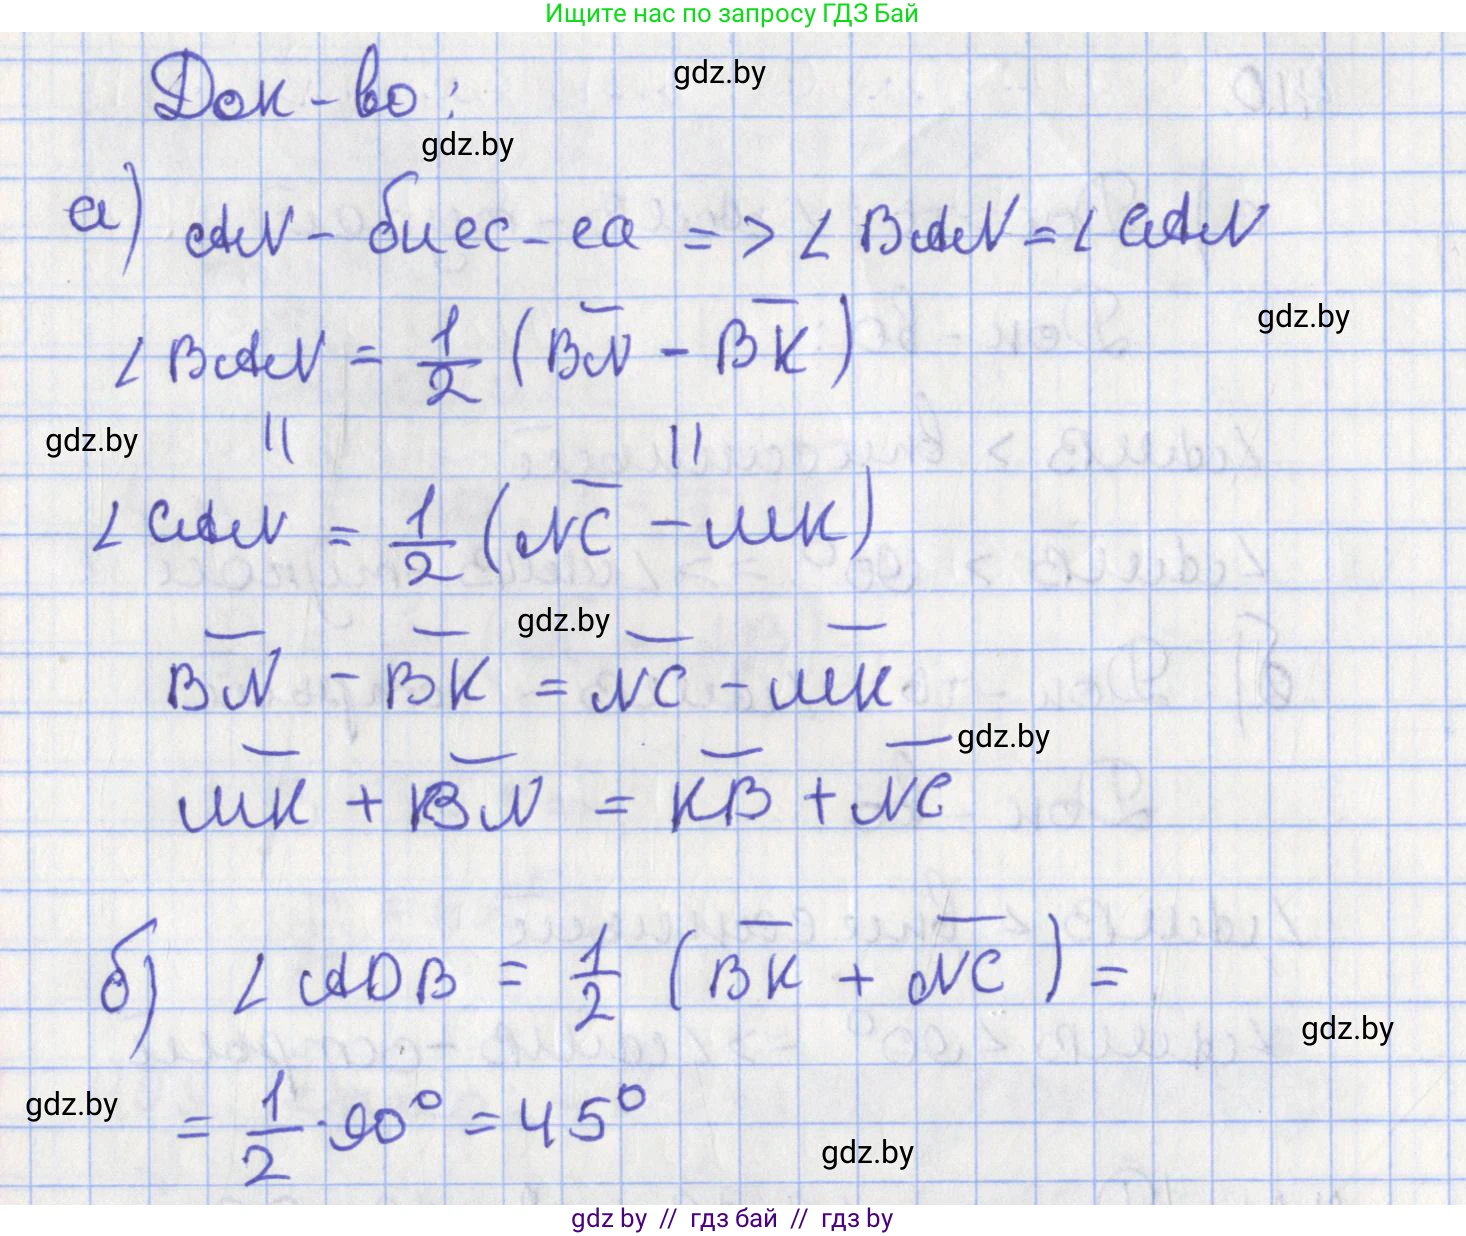 Ищите нас по запросу ГДЗ Бай
Док-во:
gdz.by
gdz.by
а) AN - бис-са => ∠BAN = ∠CAN
gdz.by
∠BAN = 1/2 (B͝N - B͝K)
gdz.by
|| ||
∠CAN = 1/2 (N͝C - MK)
gdz.by
B͝N - B͝K = N͝C - M͝K
gdz.by
M͝K + B͝N = K͝B + N͝C
б) ∠ADB = 1/2 (B͝K + N͝C) =
gdz.by
gdz.by
= 1/2 · 90° = 45°
gdz.by
gdz by // гдз бай // гдз by